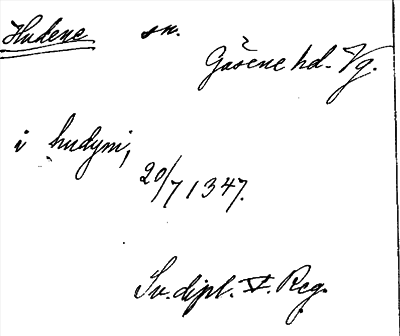 Hudene sn.
Gäsene hd. Vg.
i hudyni,
20/7 1347.
Sv. dipl. V. Reg.